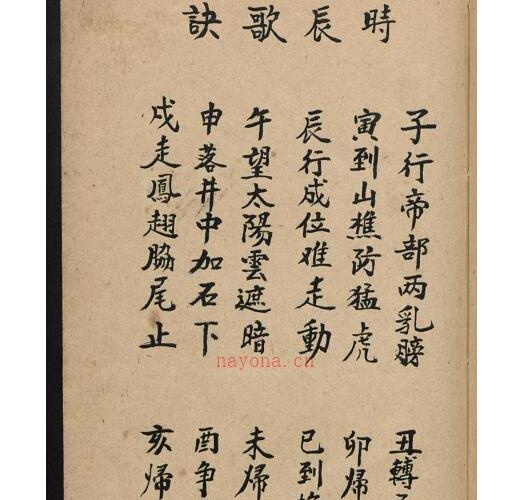 時辰歌訣
子行帝部两乳膀
丑轉
寅到山樵防猛虎
卯歸
辰行成位难走動
已到
午望太陽雲遮暗
未歸
申落井中加石下
酉争
戍走鳳翅脇尾止
亥歸
nayona.cn